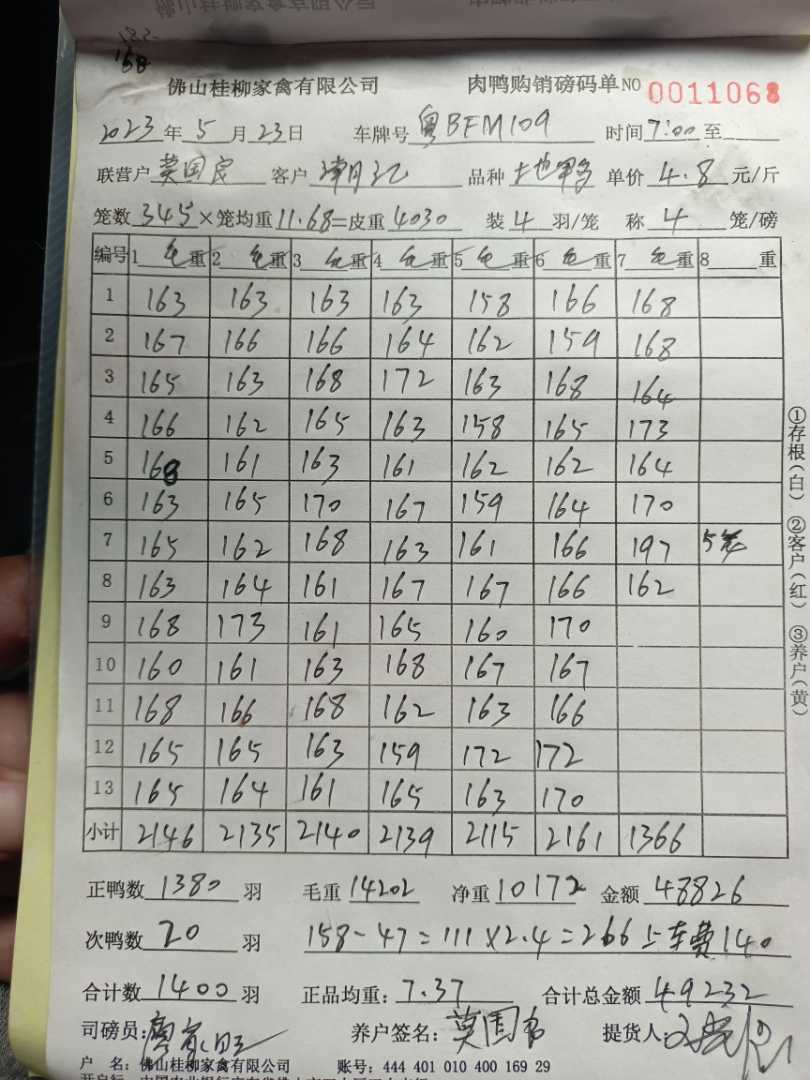 168
佛山桂柳家禽有限公司 肉鸭购销磅码单 NO 0011068
2023年5月23日 车牌号 粤BFM109 时间 7:00 至
联营户 莫国良 客户 品种 土地鸭 单价 4.8 元/斤
笼数 345 ×笼均重 11.68 =皮重 4030 装 4 羽/笼 称 4 笼/磅
编号 1 毛重 2 毛重 3 毛重 4 毛重 5 毛重 6 毛重 7 毛重 8 重
1 163 163 163 163 158 166 168
2 167 166 166 164 162 159 168
3 165 163 168 172 163 168 164
4 166 162 165 163 158 165 173
5 168 161 163 161 162 162 164
6 163 165 170 167 159 164 170
7 165 162 168 163 161 166 197 5笼
8 163 164 161 167 167 166 162
9 168 173 161 165 160 170
10 160 161 163 168 167 167
11 168 166 168 162 163 166
12 165 165 163 159 172 172
13 165 164 161 165 163 170
小计 2146 2135 2140 2139 2115 2161 1366
正鸭数 1380 羽 毛重 14202 净重 10172 金额 48826
次鸭数 20 羽 158-47=111×2.4=266 上车费140
合计数 1400 羽 正品均重: 7.37 合计总金额 49232
司磅员: 养户签名: 莫国 提货人:
户 名: 佛山桂柳家禽有限公司 账号: 444 401 010 400 169 29
①存根(白) ②客户(红) ③养户(黄)